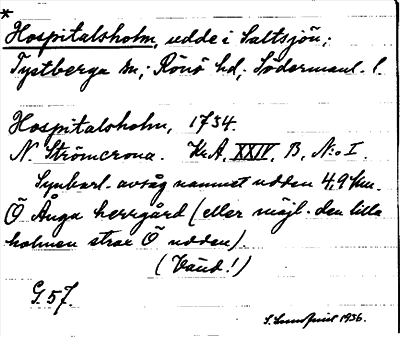 *
Hospitalsholm, udde i Saltsjön;
Tystberga sn; Rönö hd; Södermanl. l.
Hospitalsholm, 1734.
N Strömcrona. Kr.A. XXIV, B, N:o I.
Synbarl. avsåg namnet udden 4,9 km.
Ö Ånga herrgård (eller möjl. den lilla
holmen strax Ö udden).
(Vänd!)
G. 57.
S. Lundqvist 1936.